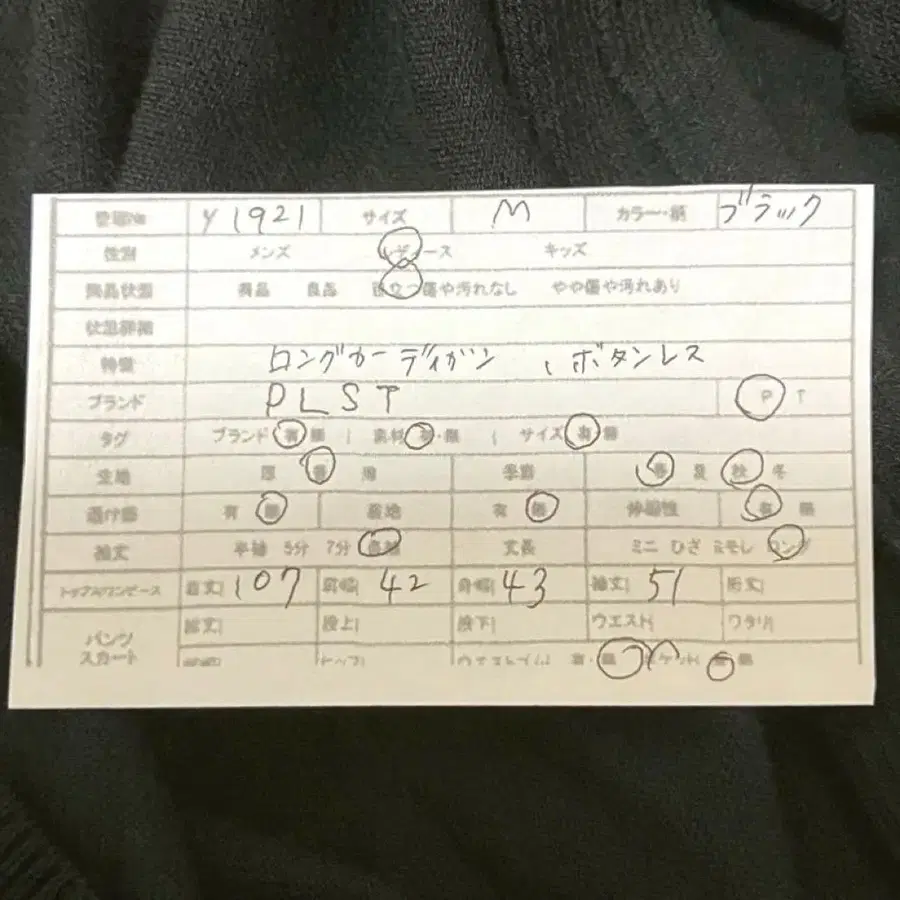 管理No Y1921 サイズ M カラー・柄 ブラック
性別 メンズ レディース キッズ
商品状態 美品 良品 目立つ傷や汚れなし やや傷や汚れあり
状態詳細
特徴 ロングカーディガン 、ボタンレス
ブランド PLST P T
タグ ブランド 有 無 | 素材 有・無 | サイズ 有 無
生地 厚 普 薄 季節 春 夏 秋 冬
透け感 有 無 裏地 有 無 伸縮性 有 無
袖丈 半袖 5分 7分 長袖 丈長 ミニ ひざ ミモレ ロング
トップス/ワンピース 着丈| 107 肩幅| 42 身幅| 43 袖丈| 51 裄丈|
パンツ スカート 総丈| 股上| 股下| ウエスト| ワタリ|
ヒップ| ウエストゴム| 有・無 ポケット| 有 無